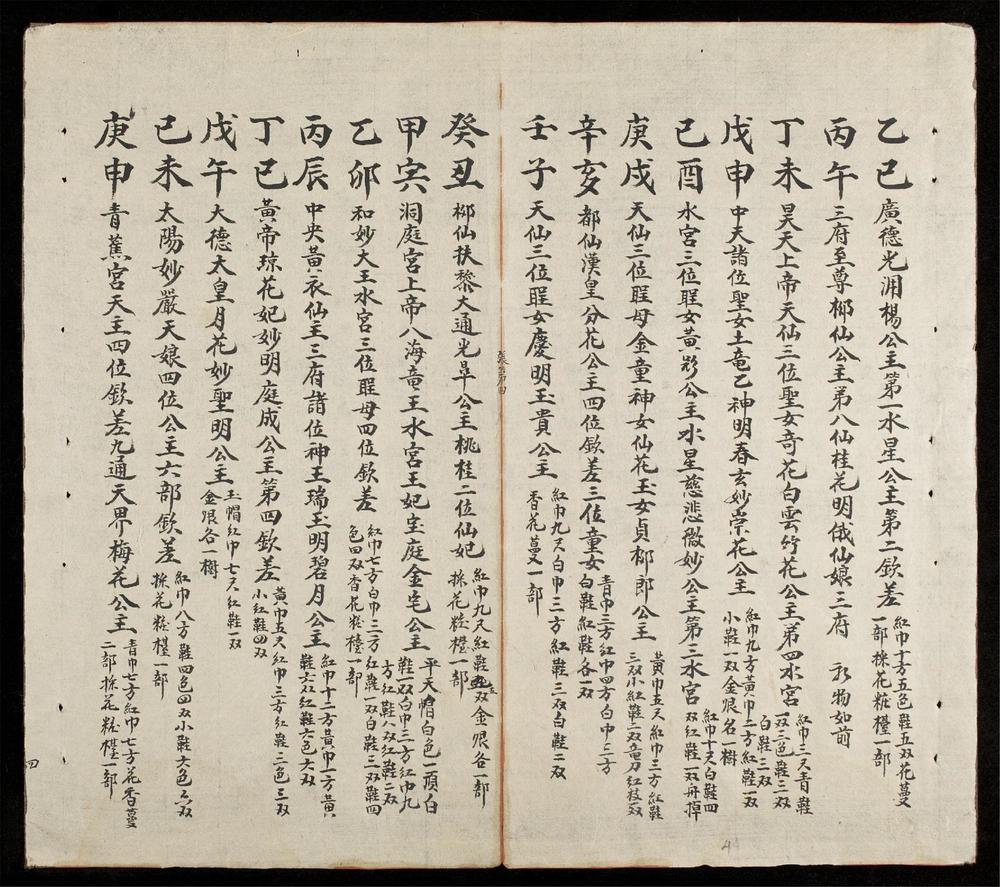 乙巳 廣德光淵楊公主第一水星公主第二欽差 紅巾十方五色鞋五双花蔓一部採花粧檯一部
丙午 三府至尊椰仙公主第八仙桂花明俄仙娘三府 衣物如前
丁未 昊天上帝天仙三位聖女竒花白雲竹花公主第四水宮 紅巾三天青鞋一双三色鞋三双白鞋三双
戊申 中天諸位聖女土竜乙神明春玄妙崇花公主 紅巾九方黃巾二方紅鞋一双小鞋一双金限各一樹
己酉 水宮三位聖女黃彩公主水星慈悲微妙公主第三水宮 紅巾十天白鞋四双紅鞋一双舟掉
庚戌 天仙三位聖母金童神女仙花玉女貞椰郎公主 黃巾五天紅巾三方紅鞋三双小紅鞋二双竜刀紅枝二双
辛亥 都仙漢皇分花公主四位欽差三位童女 青巾三方紅巾四方白巾三方白鞋紅鞋各一双
壬子 天仙三位聖女慶明玉貴公主 紅巾九天白巾三方紅鞋三双白鞋二双香花蔓一部
癸丑 椰仙扶黎大通光皐公主桃桂二位仙妃 紅巾九天紅鞋五双金限各一部採花粧檯一部
甲寅 洞庭宮上帝八海竜王水宮王妃宝庭金宅公主 平天帽白色一頂白鞋一双白巾三方紅巾九方紅鞋八双紅鞋二双
乙卯 和妙大王水宮三位聖母四位欽差 紅巾七方白巾三方紅鞋一双白鞋三双鞋四色四双香花粧檯一部
丙辰 中央黃衣仙主三府諸位神王瑞玉明碧月公主 紅巾十二方黃巾一方黃鞋六双紅鞋六色六双
丁巳 黃帝琼花妃妙明庭成公主第四欽差 黃巾五天紅巾三方紅鞋三色三双小紅鞋四双
戊午 大德太皇月花妙聖明公主 玉帽紅巾七天紅鞋一双金限各一樹
己未 太陽妙嚴天娘四位公主六部欽差 紅巾八方鞋四色四双小鞋六色六双採花粧檯一部
庚申 青蕉宮天主四位欽差九通天界梅花公主 青巾七方紅巾七方花香蔓二部採花粧檯一部
四
4